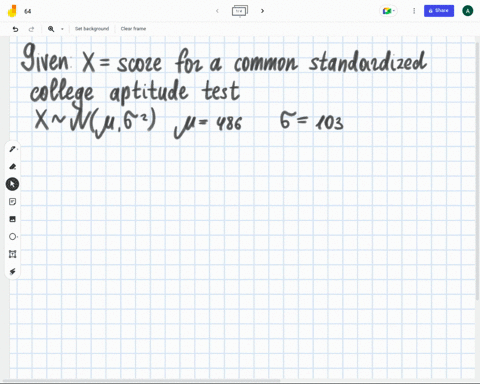 64
1/4
Share
A
Set background
Clear frame
Given: X = score for a common standardized
college aptitude test
X ~ N(μ, σ²) μ = 486 σ = 103